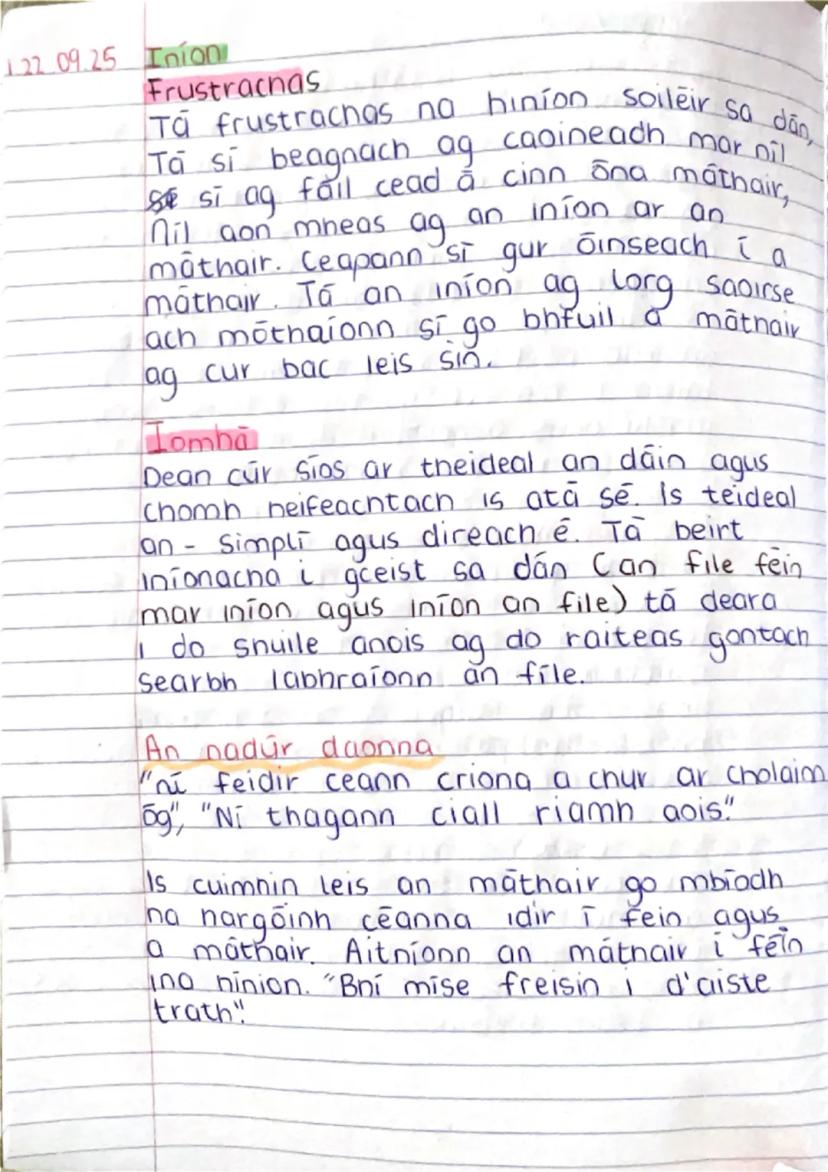 1 22 09.25 Iníon
Frustrachas
Tá frustrachas na hiníon soiléir sa dán,
Tá sí beagnach ag caoineadh mar níl
sí ag fáil cead á cinn óna máthair,
Níl aon mheas ag an iníon ar an
máthair. Ceapann sí gur óinseach í a
máthair. Tá an iníon ag lorg saoirse
ach móthaíonn sí go bhfuil a máthair
ag cur bac leis sin.
Íomhá
Dean cúr síos ar theideal an dáin agus
chomh heifeachtach is atá sé. Is teideal
an - simplí agus direach é. Tá beirt
iníonacha i gceist sa dán (an file féin
mar iníon agus iníon an file) tá deara
i do shuile anois ag do raiteas gontach
searbh labhraíonn an file.
An nadúr daonna
"ní feidir ceann críona a chur ar cholainn
óg", "Ní thagann ciall riamh aois."
Is cuimhin leis an máthair go mbíodh
na hargóinh céanna idir í féin agus
a máthair. Aitníonn an máthair í féin
ina hinion. "Bhí mise freisin i d'aiste
trath".